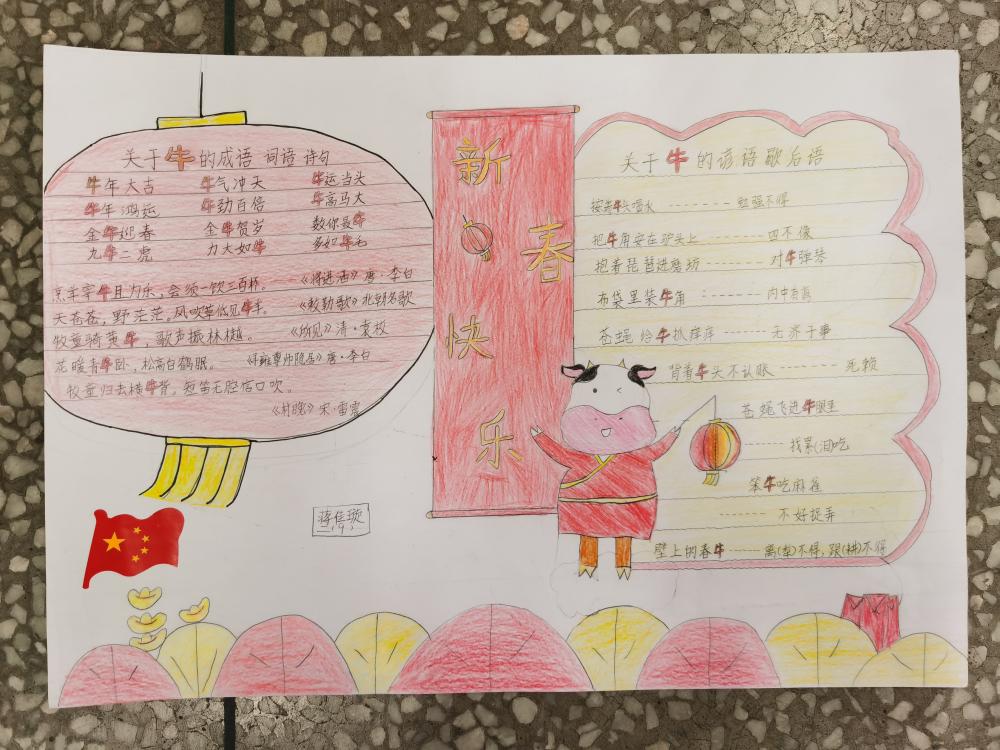 关于牛的成语 词语 诗句
牛年大吉 牛气冲天 牛运当头
牛年鸿运 牛劲百倍 牛高马大
金牛迎春 金牛贺岁 数你最牛
九牛二虎 力大如牛 多如牛毛
烹羊宰牛且为乐，会须一饮三百杯。 《将进酒》唐·李白
天苍苍，野茫茫。风吹草低见牛羊。 《敕勒歌》北朝名歌
牧童骑黄牛，歌声振林樾。 《所见》清·袁枚
花暖青牛卧，松高白鹤眠。 《寻雍尊师隐居》唐·李白
牧童归去横牛背。短笛无腔信口吹。
《村晚》宋·雷震
新
春
快
乐
关于牛的谚语歇后语
按着牛头喝水 -------- 勉强不得
把牛角安在驴头上 -------- 四不像
抱着琵琶进磨坊 -------- 对牛弹琴
布袋里装牛角 -------- 内中有高
苍蝇给牛抓痒痒 ------- 无济于事
背着牛头不认账 -------- 死赖
苍蝇飞进牛眼里
------ 找累(泪)吃
笨牛吃麻雀
------- 不好捉弄
壁上的春牛 ------ 离(犁)不得，跟(耕)不得